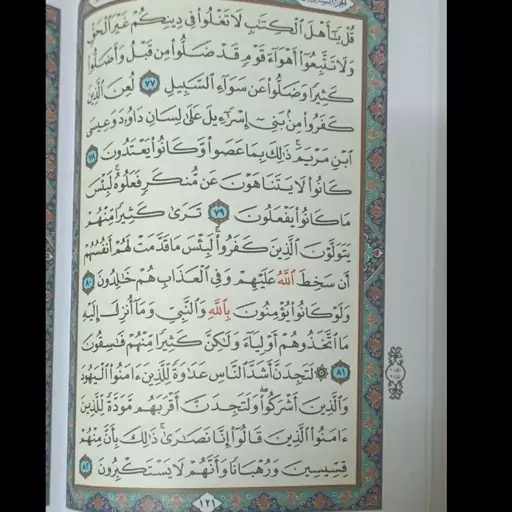 قُلْ يَٰٓأَهْلَ ٱلْكِتَٰبِ لَا تَغْلُوا۟ فِى دِينِكُمْ غَيْرَ ٱلْحَقِّ
وَلَا تَتَّبِعُوٓا۟ أَهْوَآءَ قَوْمٍ قَدْ ضَلُّوا۟ مِن قَبْلُ وَأَضَلُّوا۟
كَثِيرًا وَضَلُّوا۟ عَن سَوَآءِ ٱلسَّبِيلِ ٧٧ لُعِنَ ٱلَّذِينَ
كَفَرُوا۟ مِنۢ بَنِىٓ إِسْرَٰٓءِيلَ عَلَىٰ لِسَانِ دَاوُۥدَ وَعِيسَى
ٱبْنِ مَرْيَمَ ۚ ذَٰلِكَ بِمَا عَصَوا۟ وَّكَانُوا۟ يَعْتَدُونَ ٧٨
كَانُوا۟ لَا يَتَنَاهَوْنَ عَن مُّنكَرٍ فَعَلُوهُ ۚ لَبِئْسَ
مَا كَانُوا۟ يَفْعَلُونَ ٧٩ تَرَىٰ كَثِيرًا مِّنْهُمْ
يَتَوَلَّوْنَ ٱلَّذِينَ كَفَرُوا۟ ۚ لَبِئْسَ مَا قَدَّمَتْ لَهُمْ أَنفُسُهُمْ
أَن سَخِطَ ٱللَّهُ عَلَيْهِمْ وَفِى ٱلْعَذَابِ هُمْ خَٰلِدُونَ ٨٠
وَلَوْ كَانُوا۟ يُؤْمِنُونَ بِٱللَّهِ وَٱلنَّبِىِّ وَمَآ أُنزِلَ إِلَيْهِ
مَا ٱتَّخَذُوهُمْ أَوْلِيَآءَ وَلَٰكِنَّ كَثِيرًا مِّنْهُمْ فَٰسِقُونَ
٨١ ۞ لَتَجِدَنَّ أَشَدَّ ٱلنَّاسِ عَدَٰوَةً لِّلَّذِينَ ءَامَنُوا۟ ٱلْيَهُودَ
وَٱلَّذِينَ أَشْرَكُوا۟ ۖ وَلَتَجِدَنَّ أَقْرَبَهُم مَّوَدَّةً لِّلَّذِينَ
ءَامَنُوا۟ ٱلَّذِينَ قَالُوٓا۟ إِنَّا نَصَٰرَىٰ ۚ ذَٰلِكَ بِأَنَّ مِنْهُمْ
قِسِّيسِينَ وَرُهْبَانًا وَأَنَّهُمْ لَا يَسْتَكْبِرُونَ ٨٢
١٢١